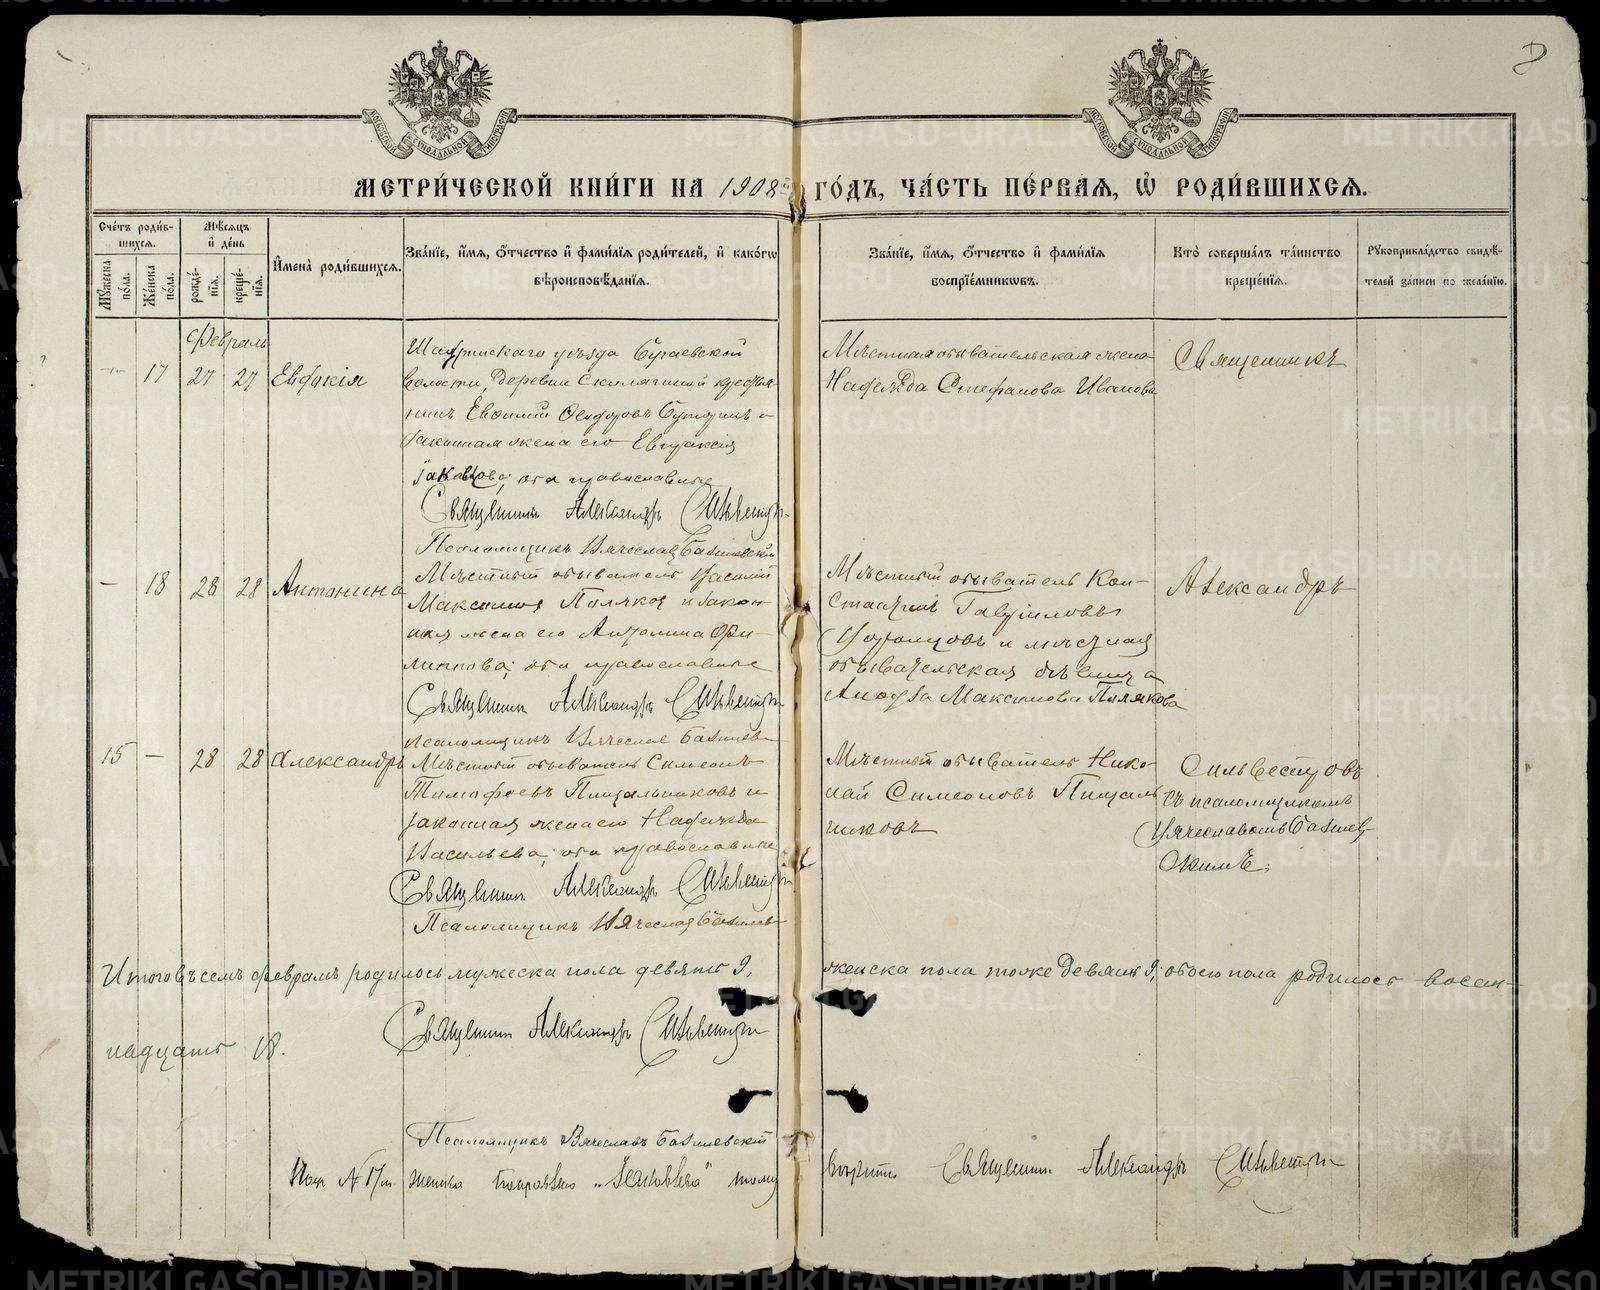 8
МЕТРИ́ЧЕСКОЙ КНИ́ГИ НА 1908 ГО́ДЪ, ЧА́СТЬ ПЕ́РВАѦ, Ѽ РОДИ́ВШИХСѦ.
Сче́тъ роди́в-
шихсѧ.
Мѣ́сѧцъ
и҆ де́нь
Мꙋ́жеска по́ла.
Же́нска по́ла.
рожде́-
нїѧ.
креще́-
нїѧ.
И҆мена̀ роди́вшихсѧ.
Зва́нїе, и҆́мѧ, ѻ҆́тчество и҆ фами́лїѧ роди́телей, и҆ како́гѡ
вѣроисповѣ́данїѧ.
Зва́нїе, и҆́мѧ, ѻ҆́тчество и҆ фами́лїѧ
воспрїе́мникѡвъ.
Кто̀ соверша́лъ та́инство
креще́нїѧ.
Рꙋкоприкла́дство свидѣ́-
телей за́писи по жела́нїю.
Февраль
— 17 27 27 Евдокія
Шадринскаго уѣзда Бугаевской
волости, деревни крестья-
нинъ Евѳимій Ѳеодоровъ и
законная жена его Евпраксія
Іаковлева; оба православные
Священникъ Александръ Сильвестровъ
Псаломщикъ Вячеславъ Базилевскій
Мѣстная обывательская жена
Надежда Стефанова Иванова
Священникъ
— 18 28 28 Антонина
Мѣстный обыватель Василій
Максимовъ Поляковъ и закон-
ная жена его Антонина Фи-
липпова; оба православные
Священникъ Александръ Сильвестровъ
Псаломщикъ Вячеславъ Базилев
Мѣстный обыватель Кон-
стантинъ Гавриловъ
и мѣстная
обывательская дѣвица
Максимова Полякова
Александръ
15 — 28 28 Александръ
Мѣстный обыватель Симеонъ
Тимофеевъ Пищальниковъ и
законная жена его Надежда
Васильева; оба православные
Священникъ Александръ Сильвестровъ
Псаломщикъ Вячеславъ Базилев
Мѣстный обыватель Нико-
лай Симеоновъ Пищаль
никовъ
Сильвестровъ
съ псаломщикомъ
Вячеславомъ Базилев-
скимъ.
Итого въ семъ февралѣ родилось мужеска пола девять 9, женска пола тоже девять 9; обоего пола родилось восем-
надцать 18.
Священникъ Александръ Сильвестровъ
Псаломщикъ Вячеславъ Базилевскій
№ 17 женска поправлено „Іаковлева" тому вѣрить Священникъ Александръ Сильвестровъ